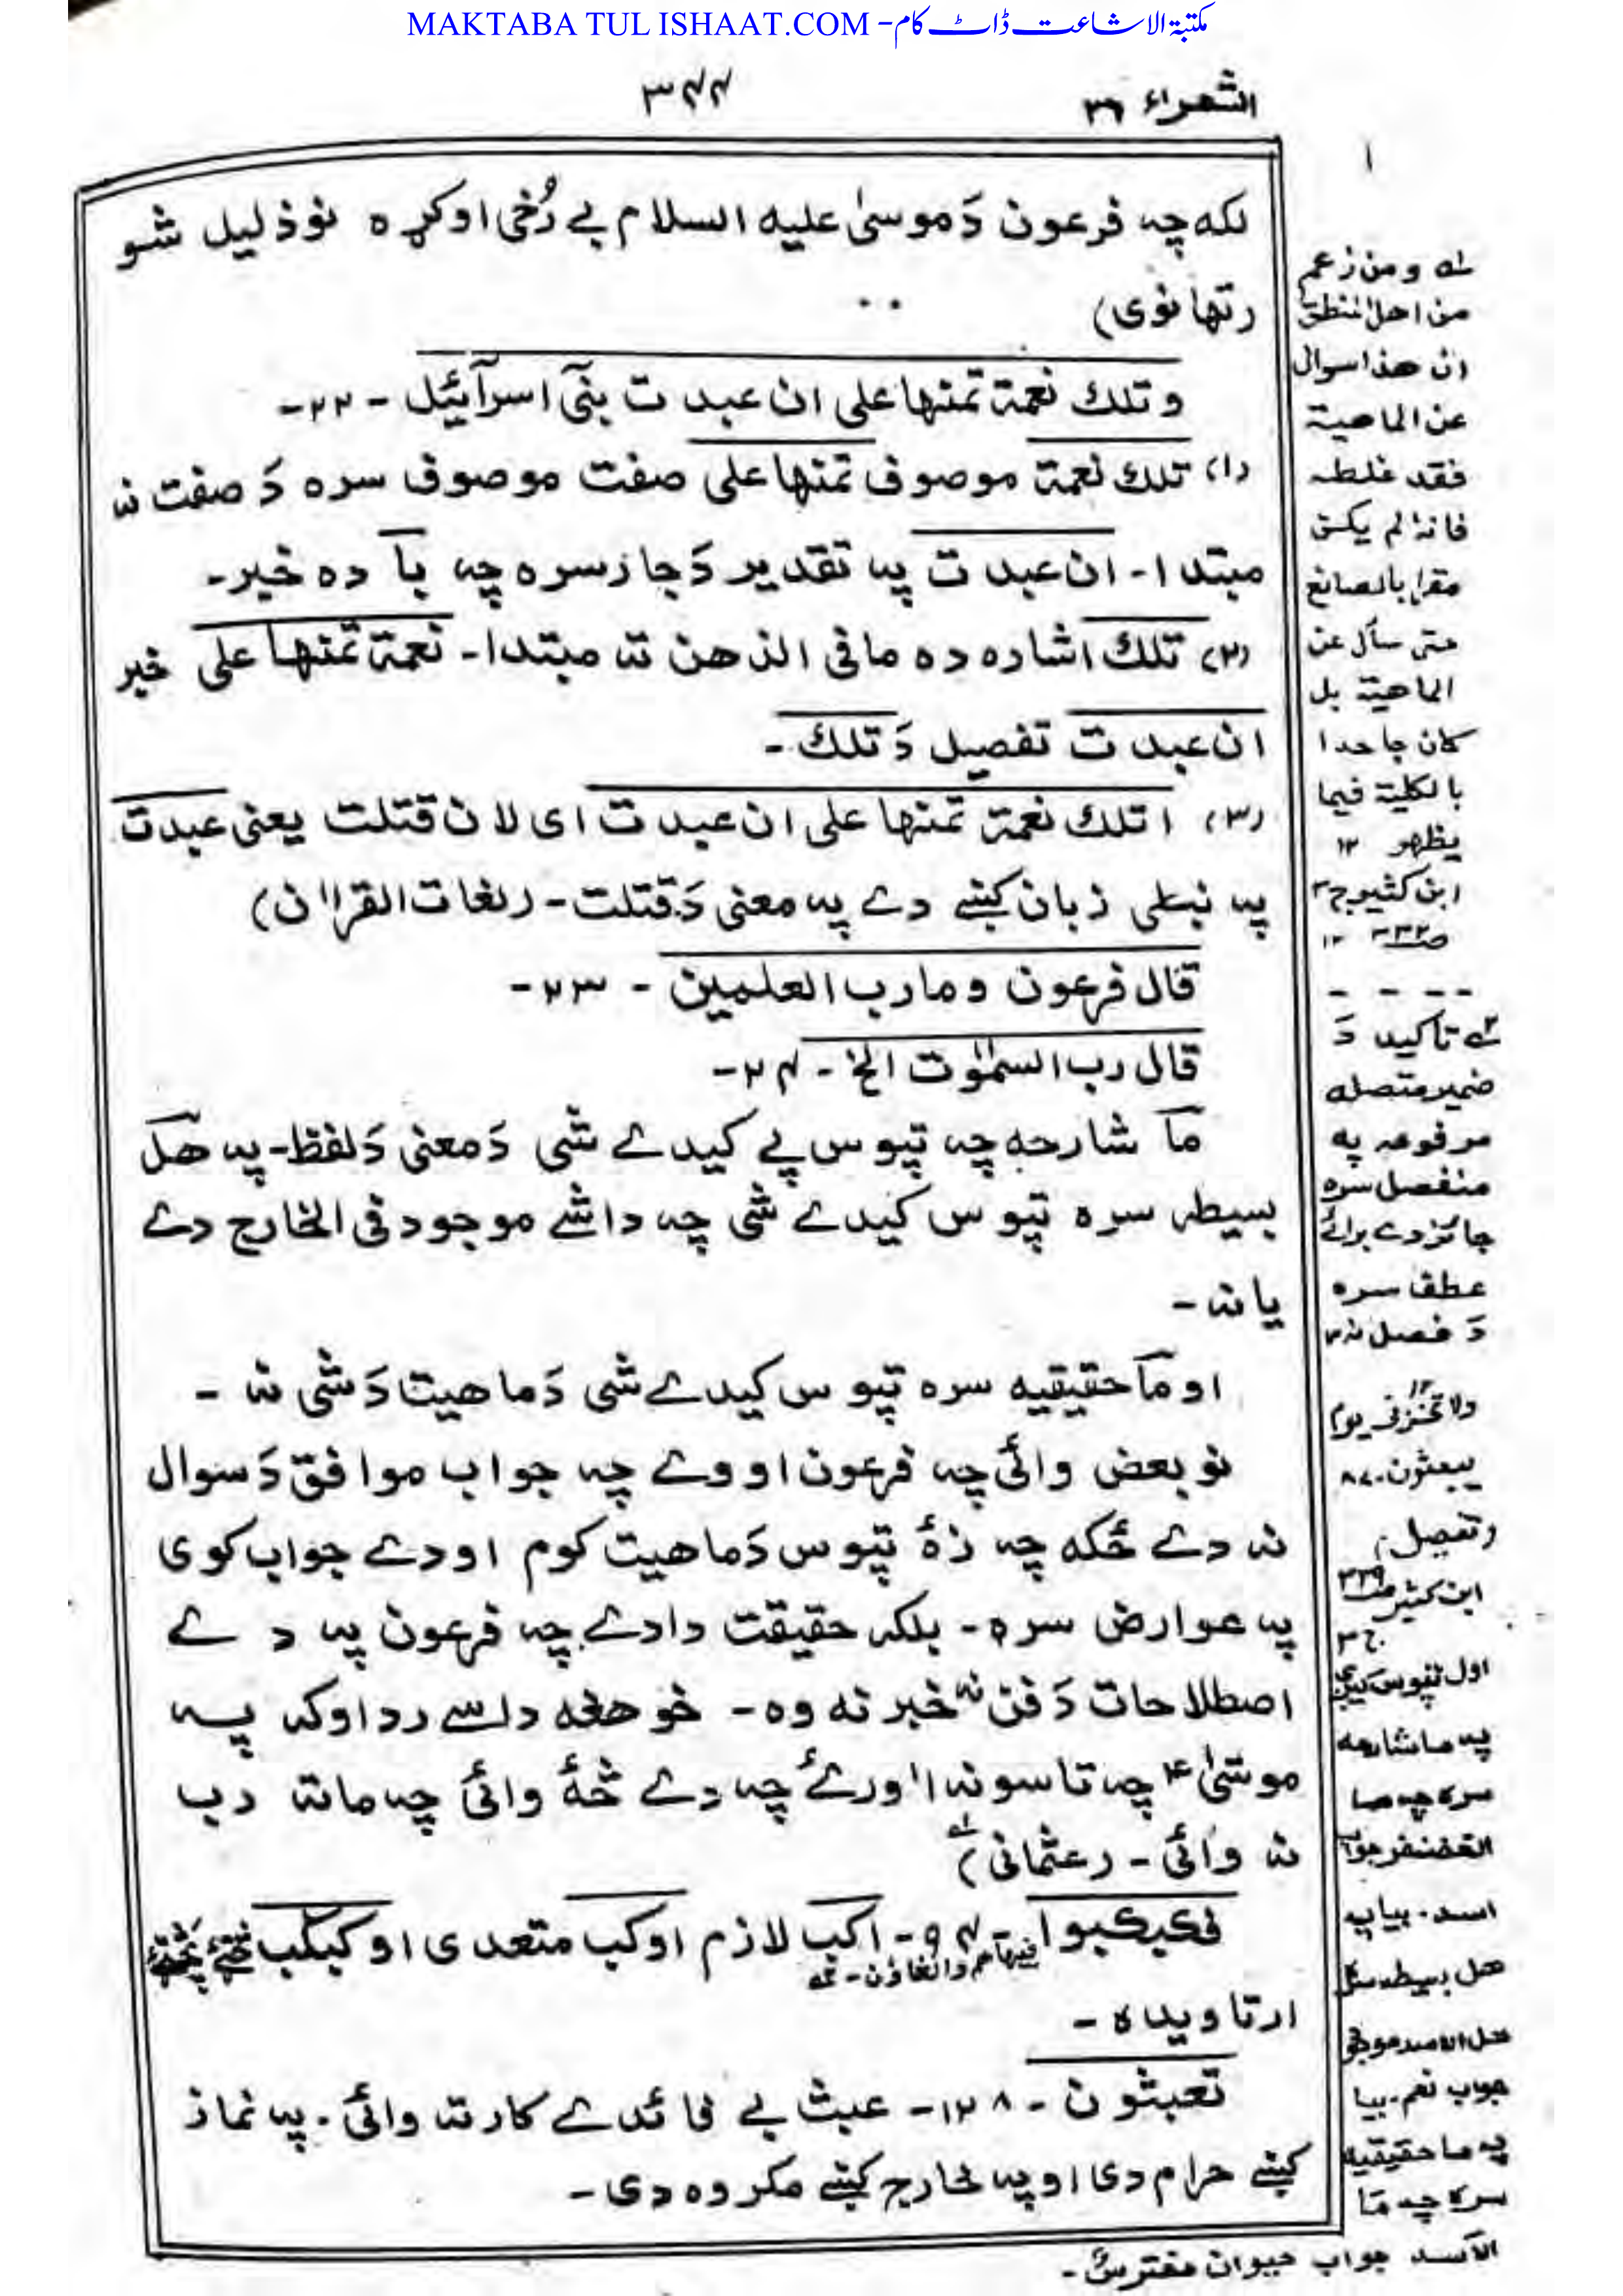 MAKTABA TUL ISHAAT.COM - مکتبۃ الاشاعت ڈاٹ کام
الشعراء ۲۶
۳۴۴
لکه چه فرعون دَ موسیٰ علیه السلام بے رُخی اوکړه نو ذلیل شو
(تھانوی)
وتلك نعمة تمنها علی ان عبدت بنیٓ اسرآئیل - ۲۲-
(۱) تلك نعمة موصوف تمنها علی صفت موصوف سره دَ صفت نه
مبتدا - ان عبدت په تقدیر دَ جار سره چه با ده خبر-
(۲) تلك اشاره ده مافی الذهن ته مبتدا - نعمة تمنها علی خبر
ان عبدت تفصیل دَ تلك -
(۳) اتلك نعمة تمنها علی ان عبدت ای لان قتلت یعنی عبدت
په نبطی زبان کښے دے په معنی دَ قتلت - (لغات القراٰن)
قال فرعون وما رب العلمین - ۲۳-
قال رب السمٰوٰت الخ - ۲۴-
ما شارحه چه تپوس پے کیدے شی دَ معنی دَ لفظ - په هل
بسیطه سره تپوس کیدے شی چه دا شے موجود فی الخارج دے
یا نه -
او ما حقیقیه سره تپوس کیدے شی دَ ماهیت دَ شی نه -
نو بعض وائی چه فرعون اووے چه جواب موافق دَ سوال
نه دے ځکه چه زۀ تپوس دَ ماهیت کوم او دے جواب کوی
په عوارض سره - بلکه حقیقت دا دے چه فرعون په دے
اصطلاحات دَ فن نه خبر نه وه - خو هغه داسے رد اوکه په
موسیٰ ؑ چه تاسو نه اورئ چه دے څۀ وائی چه ماته رب
نه وائی - (عثمانی) ؎۱
فکبکبوا - ۹۴ - اکب لازم او کب متعدی او کبکب
فیها هم والغاؤن -
ارتاویده -
تعبثون - ۱۲۸ - عبث بے فائدے کار ته وائی - په نماز
کښے حرام دی او په خارج کښے مکروه دی -
۱
؎۱ ومن زعم
من اهل المنطق
ان هذا سوال
عن الماهیة
فقد غلط
فانه لم یکن
مقرا بالصانع
حتی سأل عن
الماهیة بل
کان جاحدا
بالکلیة فیما
یظهر ۱۲
ابن کثیر ج۳
ص۳۳۲ ۱۲
- - - -
؎۲ تاکید دَ
ضمیر متصله
مرفوعه په
منفصل سره
جائز دے برائے
عطف سره
دَ فصل نه ۱۲
ولا تخزنی یوم
یبعثون - ۸۷
(تفصیل)
ابن کثیر ص۳۳۹
ج ۳
اول تپوس کیږی
په ما شارحه
سره چه ما
الغضنفر جواب
اسد - بیا په
هل بسیطه سره
هل الاسد موجود
جواب نعم - بیا
په ما حقیقیه
سره چه ما
الاسد جواب حیوان مفترس -